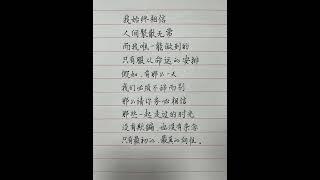 我始终相信
人间聚散无常
而我唯一能做到的
只有服从命运的安排
假如,有那么一天
我们必须不辞而别
那么请你务必相信
那些一起走过的时光
没有欺骗,也没有杂念
只有最初的、最真的向往。